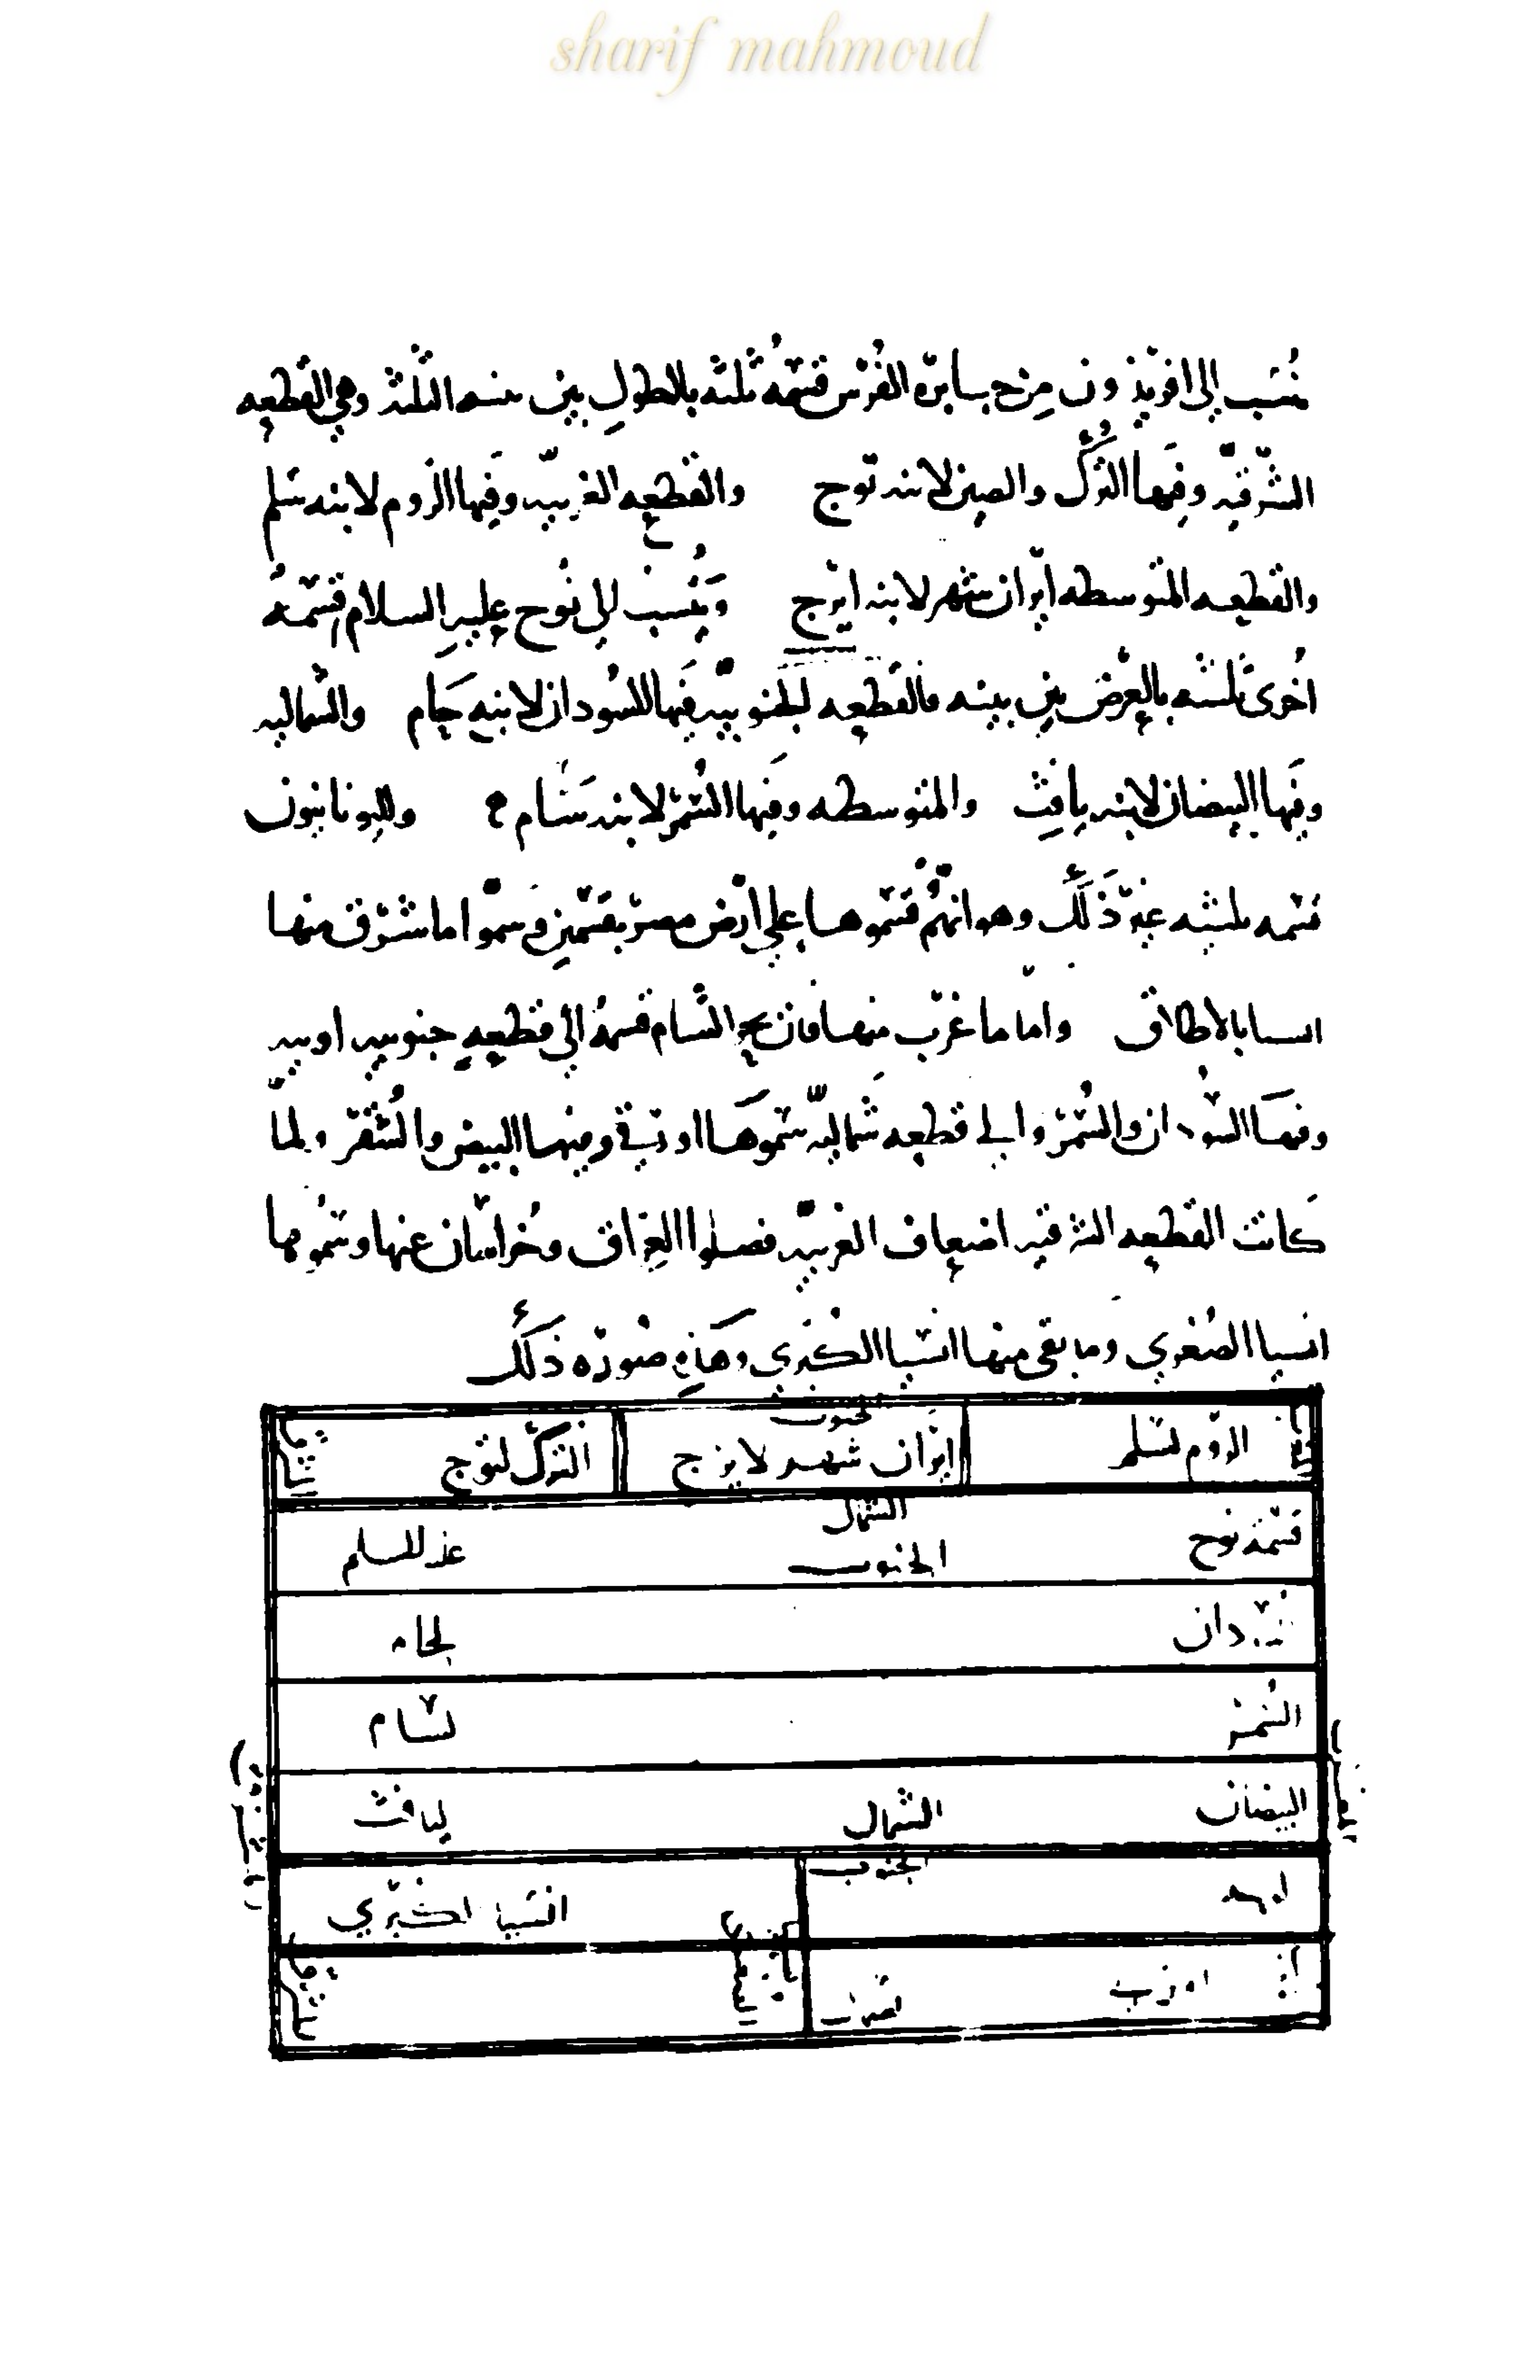 sharif mahmoud
نُسَب إلى افريذون من جبابرة الفُرْس قسمَةُ ثلثه بالطولِ بين بنيه الثلثة وهي القطعه
الشرقيّه وفيها التُرك والصين لابنه توج والقطعه الغربيّه وفيها الروم لابنه سَلم
والقطعه المتوسطه ايران شهر لابنه ايرج ويُنسبُ الى نُوح عليه السلام قسمةُ
أخرى ثلثه بالعرْض بين بنيه فالقطعه الجنوبيّه فيها السُودان لابنه حَام والشماليه
وفيها البيضان لابنه يافِث والمتوسطه وفيها السُمْر لابنه سَام ح ولليونانيون
قسمه ثلثيه غير ذَلك وهو انهُم قسموها على ارض مصر بقسمين وسموا ما شرق منها
اسيا بالاطلاق واما ما غرّب منها فان بحر الشام قسمهُ الى قطعهٍ جنوبيه لوبيه
وفيها السُودان والسُمْر والى قطعه شماليّه سَموهَا اورقي وفيها البيض والشُقر ولما
كانت القطعه الشرقيه اضعاف الغربيّه فصلوا العِراق وخُراسان عنها وسَمُوها
اسيا الصُغرى وما بقى منها اسيا الكُبرى وهَذِهِ صُورَه ذَلك
الجنوب
الروم لسَلم ايرَان شهر لايرج التركّ لتوج
الشمال
قسمَة نوح الجنوب عليه السلم
لحام
السُمْر لسَام
البيضان الشمال ليافث
الجنوب
اسيَا الكُبرّي